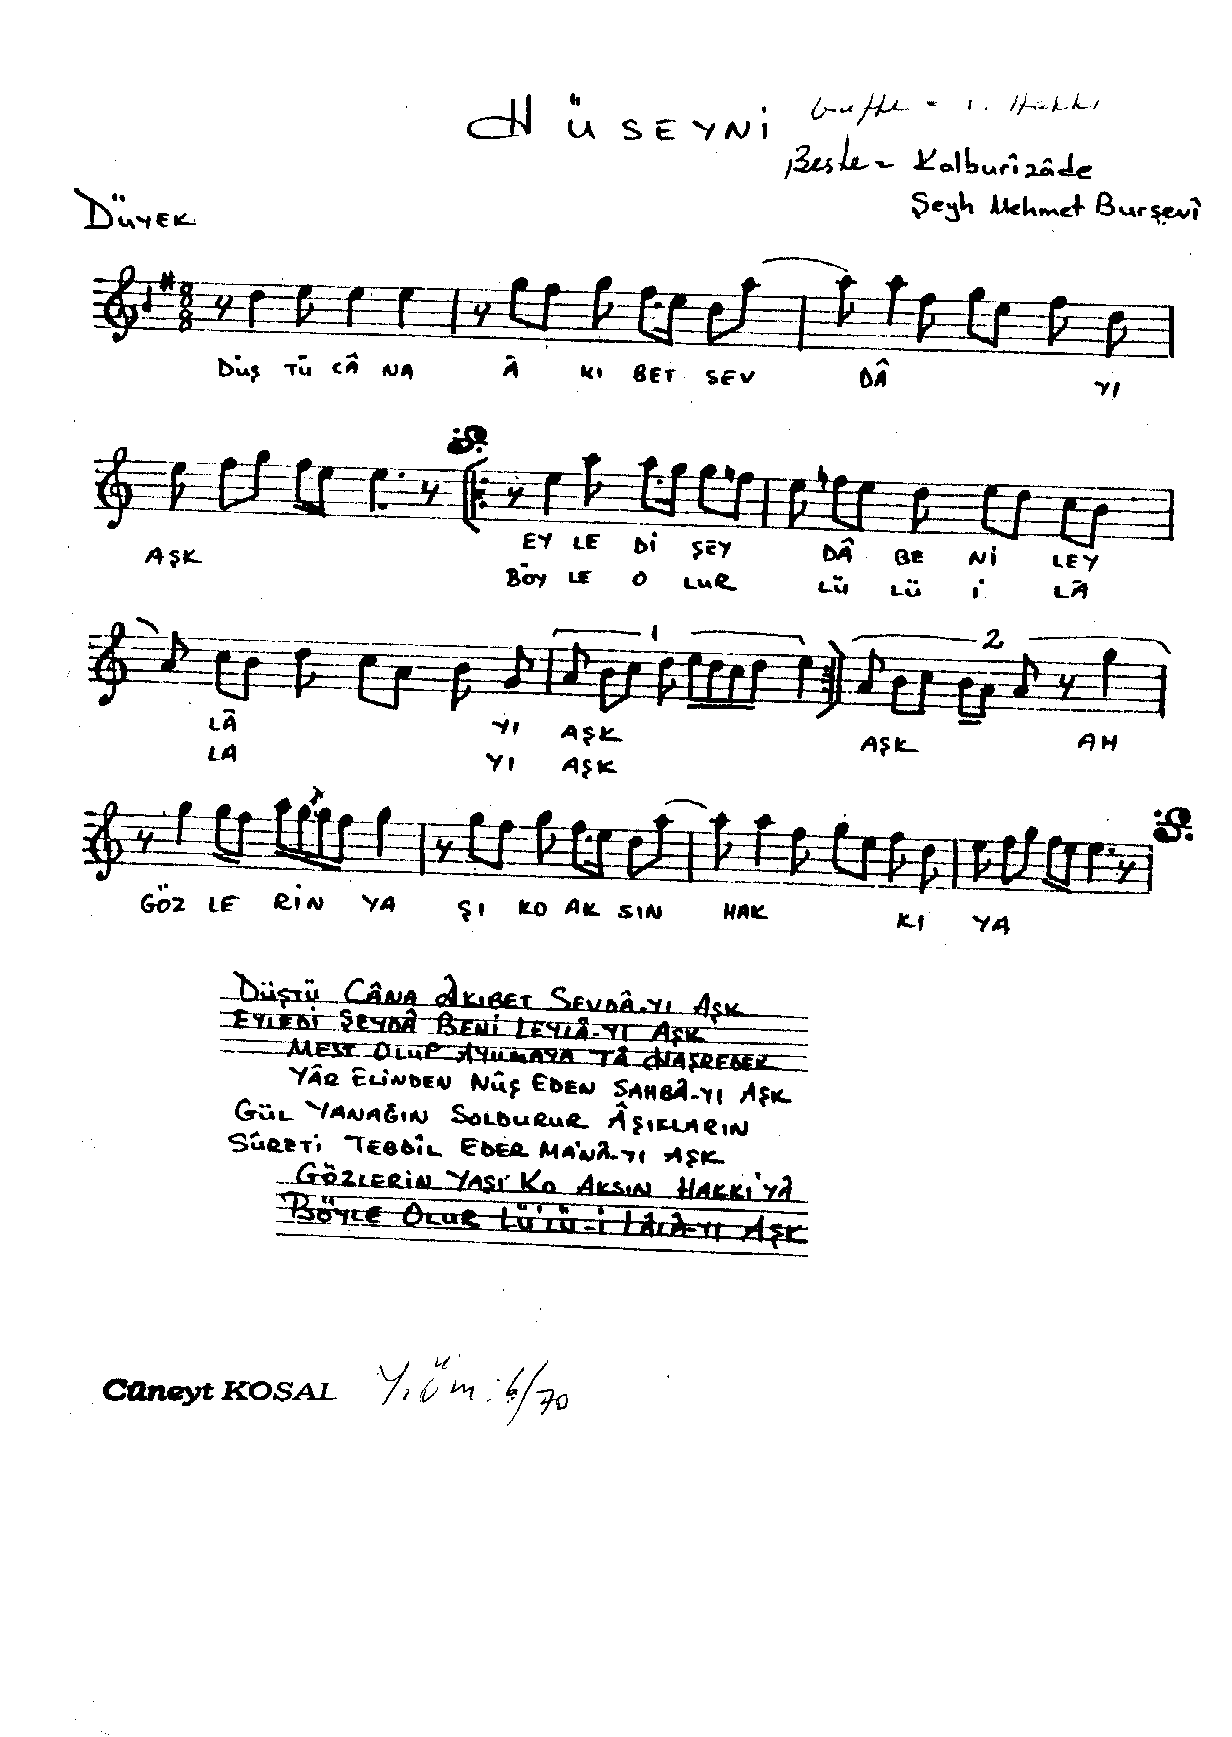 HÜSEYNİ
Güfte = İ. Hakkı
Beste = Kalburîzâde
Şeyh Mehmet Burşevî
DÜYEK
8
8
DÜŞ TÜ CÂ NA Â KI BET SEV DÂ YI
AŞK EY LE Dİ ŞEY DÂ BE Nİ LEY
BÖY LE O LUR LÜ LÜ İ LÂ
1 2
LÂ YI AŞK AŞK AH
LA YI AŞK
GÖZ LE RİN YA ŞI KO AK SIN HAK KI YA
DÜŞTÜ CÂNA ÂKIBET SEVDÂ-YI AŞK
EYLEDİ ŞEYDÂ BENİ LEYLÂ-YI AŞK
MEST OLUP AYILMAYA TÂ HAŞREDEK
YÂR ELİNDEN NÛŞ EDEN SAHBÂ-YI AŞK
GÜL YANAĞIN SOLDURUR ÂŞIKLARIN
SÛRETİ TEBDİL EDER MA'NÂ-YI AŞK
GÖZLERİN YAŞI KO AKSIN HAKKI'YÂ
BÖYLE OLUR LÜ'LÜ-İ LÂLÂ-YI AŞK
Cüneyt KOSAL Y.Öm: 6/70